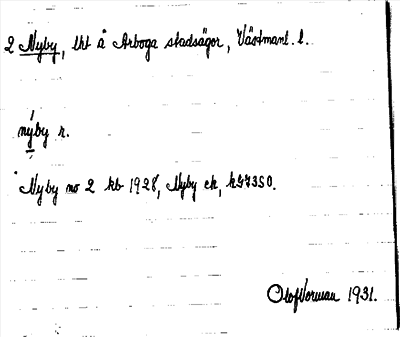 2 Nyby, lht å Arboga stadsägor, Västmanl. l.
nýby r.
Nyby no 2 kb 1928, Nyby ek,
Olof Vorman 1931.